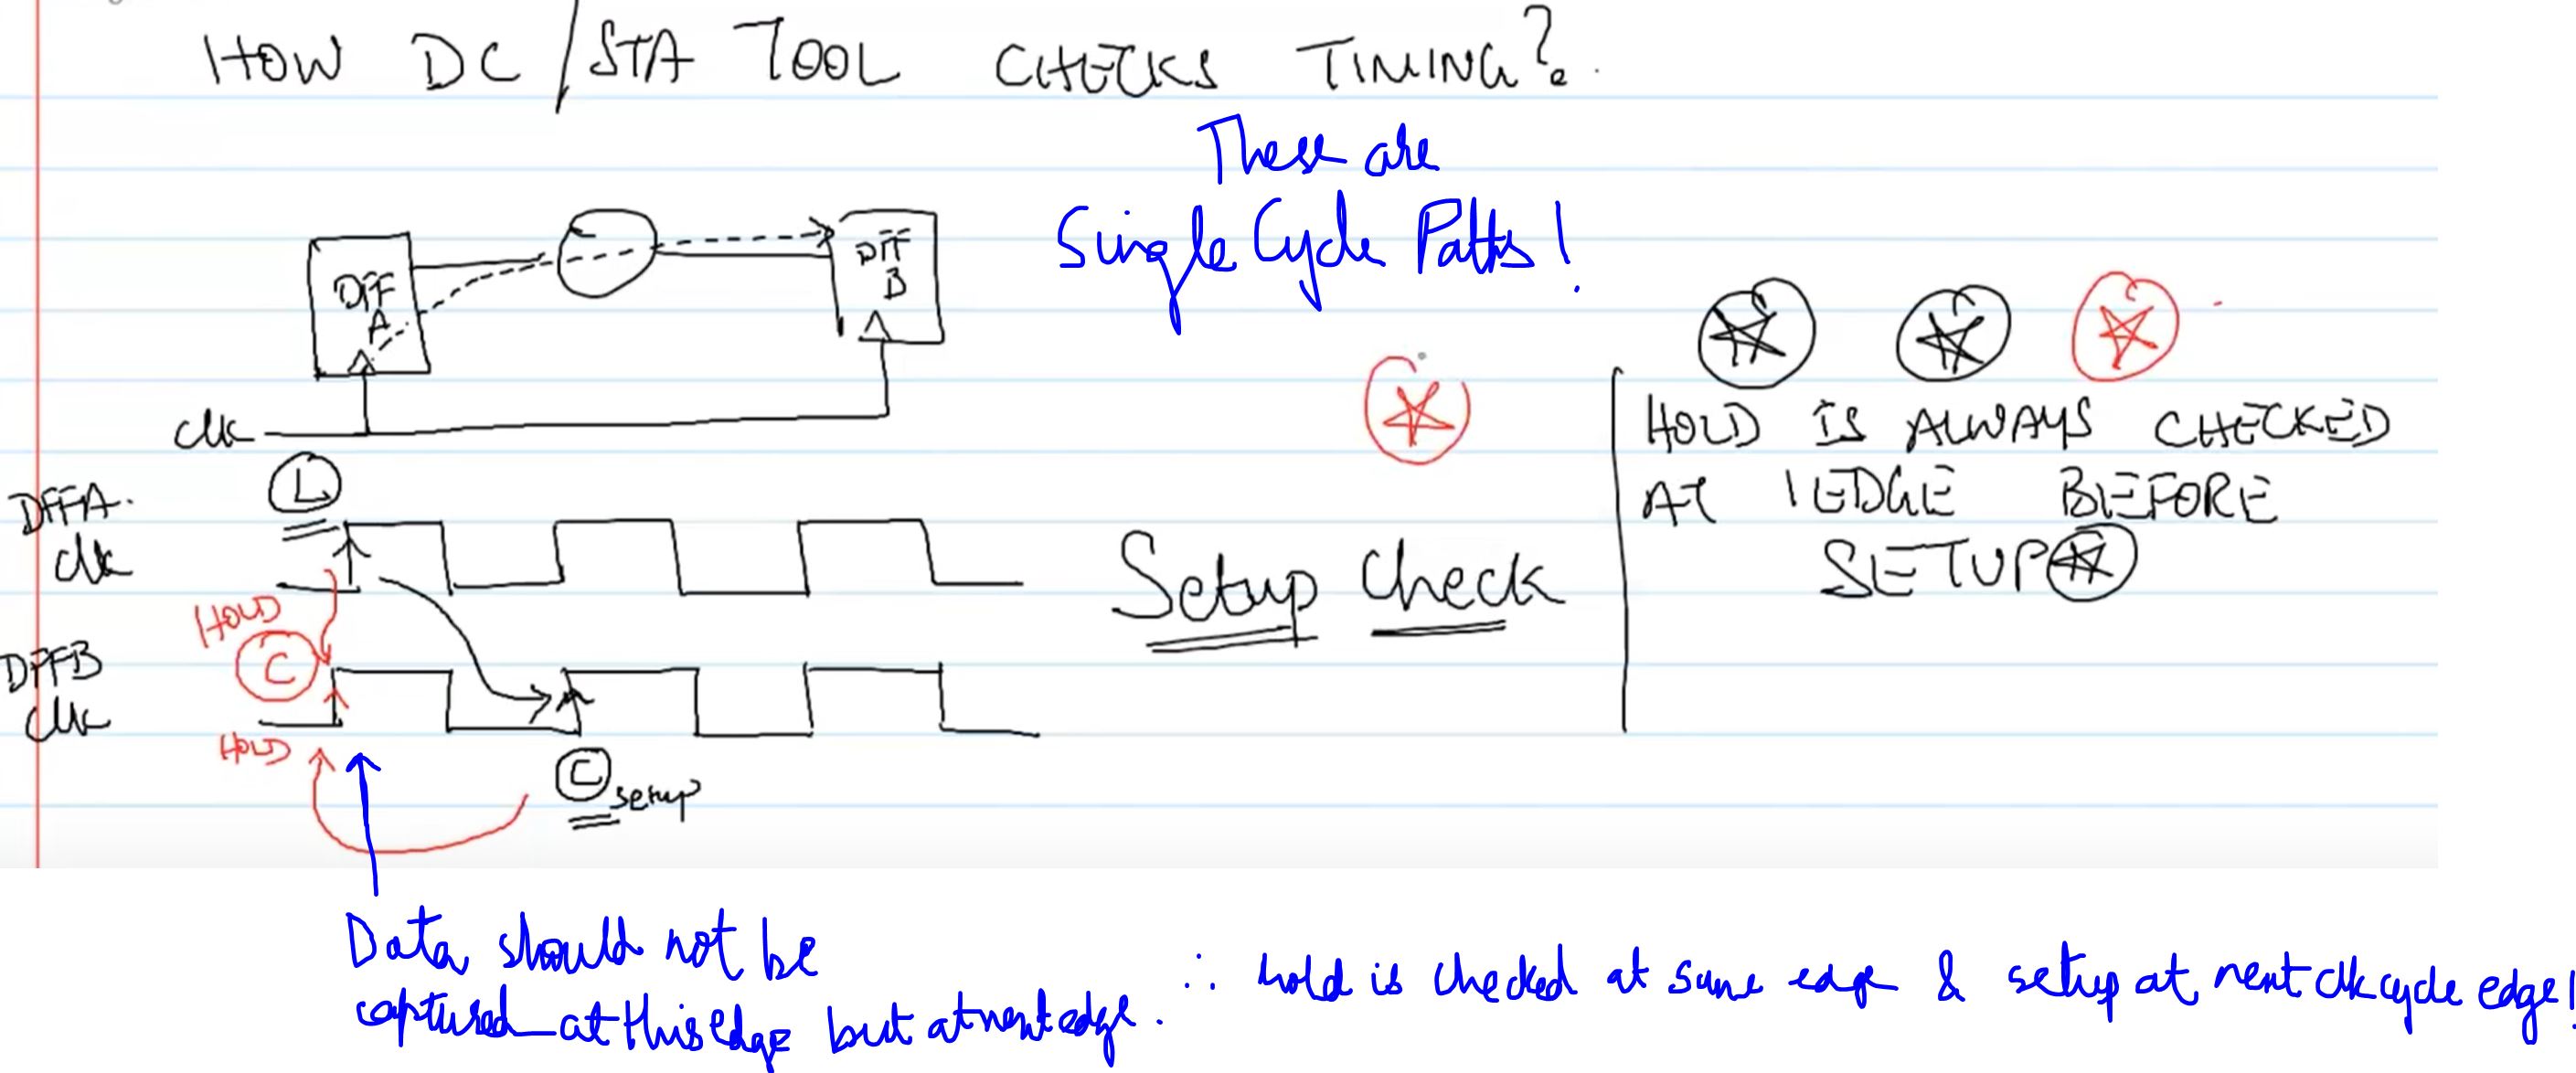 HOW DC/STA TOOL CHECKS TIMING?
These are
Single Cycle Paths!
DFF
A
DFF
B
clk
L
DFFA
clk
HOLD
C
DFFB
clk
HOLD
C setup
Setup Check
HOLD IS ALWAYS CHECKED
AT 1EDGE BEFORE
SETUP
Data should not be
captured at this edge but at next edge.
∴ hold is checked at same edge & setup at next clk cycle edge!